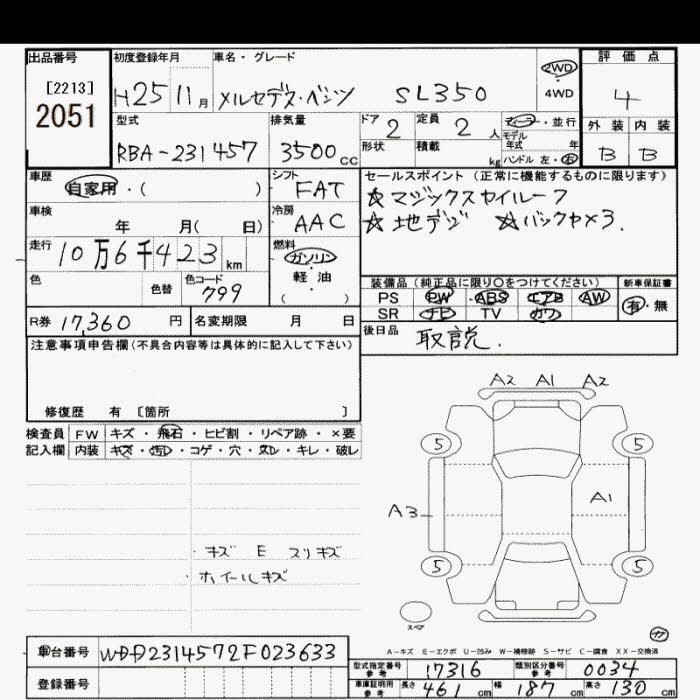 出品番号 初度登録年月 車名・グレード 評価点
[2213]
2051
H25 11月 メルセデス・ベンツ SL350 2WD 4WD 4
型式 排気量 ドア 2 定員 2 人 ディーラー・並行 外装 内装
RBA-231457 3500cc 形状 積載 kg モデル年式 年 ハンドル 左・右 B B
車歴 シフト セールスポイント(正常に機能するものに限ります)
自家用・( ) FAT ☆マジックスカイルーフ
車検 年 月( 日) 冷房 AAC ☆地デジ ☆バックカメラ.
走行 10万6千423km 燃料 ガソリン・軽油 ( )
色 色替 色コード 799
装備品(純正品に限り○をつけてください) 新車保証書
PS PW ABS エアB AW 有・無
SR ナビ TV カワ
R券 17,360 円 名変期限 月 日
後日品 取説.
注意事項申告欄(不具合内容等は具体的に記入して下さい)
修復歴 有 [箇所 ]
検査員 FW キズ・飛石・ヒビ割・リペア跡・×要
記入欄 内装 キズ・汚れ・コゲ・穴・スレ・キレ・破レ
A2 A1 A2
5 5
A3 A1
5 5
・キズ E スリキズ
・ホイールキズ
スペア
A-キズ E-エクボ U-凹み W-補修跡 S-サビ C-腐食 XX-交換済
車台番号 WDD2314572F023633
登録番号
型式指定番号 参考 17316 類別区分番号 参考 0034
車庫証明用 参考 長さ 461 cm 幅 187 cm 高さ 130 cm